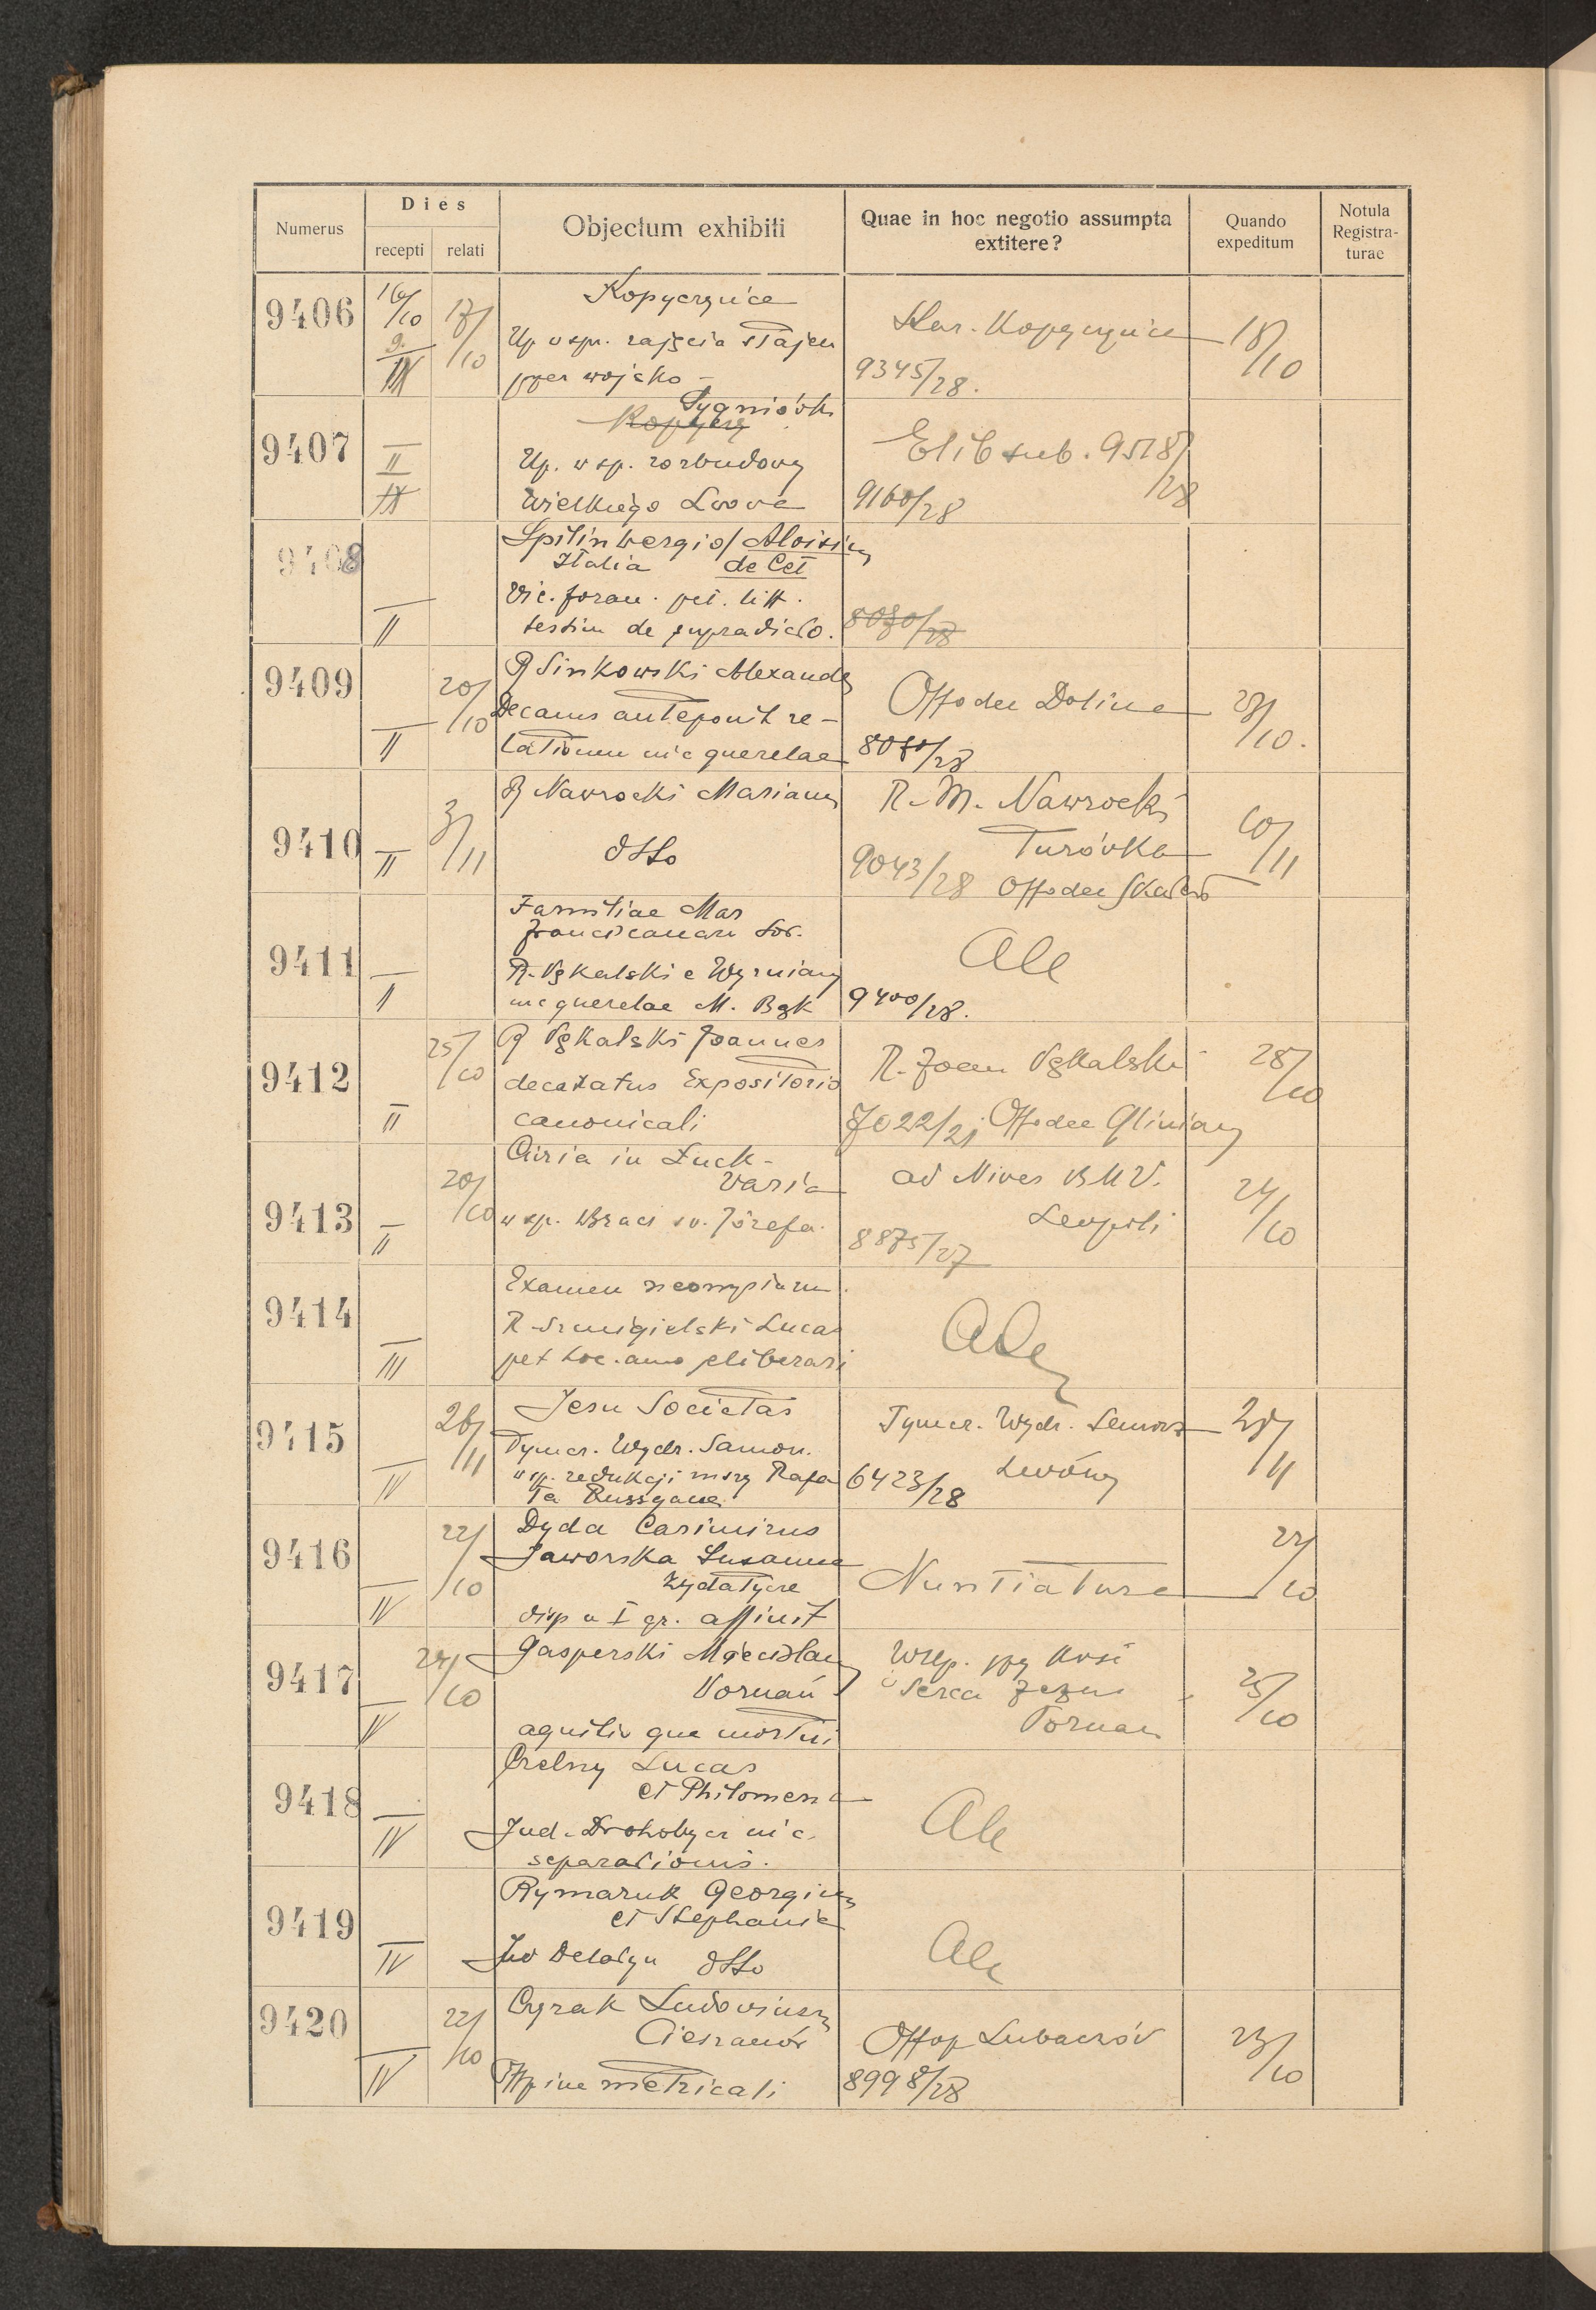 Numerus
Dies
recepti
relati
Objectum exhibiti
Quae in hoc negotio assumpta
extitere?
Quando
expeditum
Notula
Registra-
turae
9406
16/10
9.
IX
17/10
Kopyczyńce
Up w spr. zajęcia stajen
przez wojsko –
Star. Kopyczyńce
9345/28.
18/10
9407
II
IX
Sygniówka
Up. w sp. rozbudowy
Wielkiego Lwowa
Elib sub. 9518/28
9160/28
9408
II
Spilinbergio/ Aloisius
Italia de Cet
Vic. foran. pet. litt.
testim de supradicto.
8080/28
9409
II
20/10
R Sinkowski Alexander
Decanus anteponit re-
lationem nie querelae
Offo dec Dolina
8080/28
23/10.
9410
II
3/11
R Nawrocki Marianus
dtto
R. M. Nawrocki
Turówka
9043/28 Offo dec Skałat
10/11
9411
II
Familiae Mar
Franciscanarum Sor.
R. Wyrniany
querelae M. Bąk
Ale
9400/28.
9412
II
25/10
R Joannes
decoratus Expositorio
canonicali
R. Joan
7022/21. Offo dec Gliniany
28/10
9413
II
20/10
Curia in Łuck –
Varia
w sp. Braci św. Józefa.
ad Nives BMV.
Leopoli
8875/27
24/10
9414
III
Examen
R. Szmigielski Lucas
pet hoc anno eliberari
Ale
9415
IV
26/11
Jesu Societas
Tymcz. Wydz. Samorz.
w sp. redukcji mszy Rafa
ła Russyana
Tymcz. Wydz. Samorz
6423/28 Lwów
28/11
9416
IV
22/10
Dyda Casimirus
Jaworska Susanna
Żydatycze
disp a I gr. affinit
Nuntiatura
22/10
9417
IV
24/10
Gasperski Miecislaus
Poznań
mortui
Serca Jezus
Poznań
25/10
9418
IV
Lucas
et Philomena
Jud. Drohobycz
separationis.
Ale
9419
IV
Rymaruk Georgius
et Stephania
Jud Delatyn dtto
Ale
9420
IV
22/10
Cyrak Ludovicus
Cieszanów
Offo metricali
Offop Lubaczów
8998/28
23/10